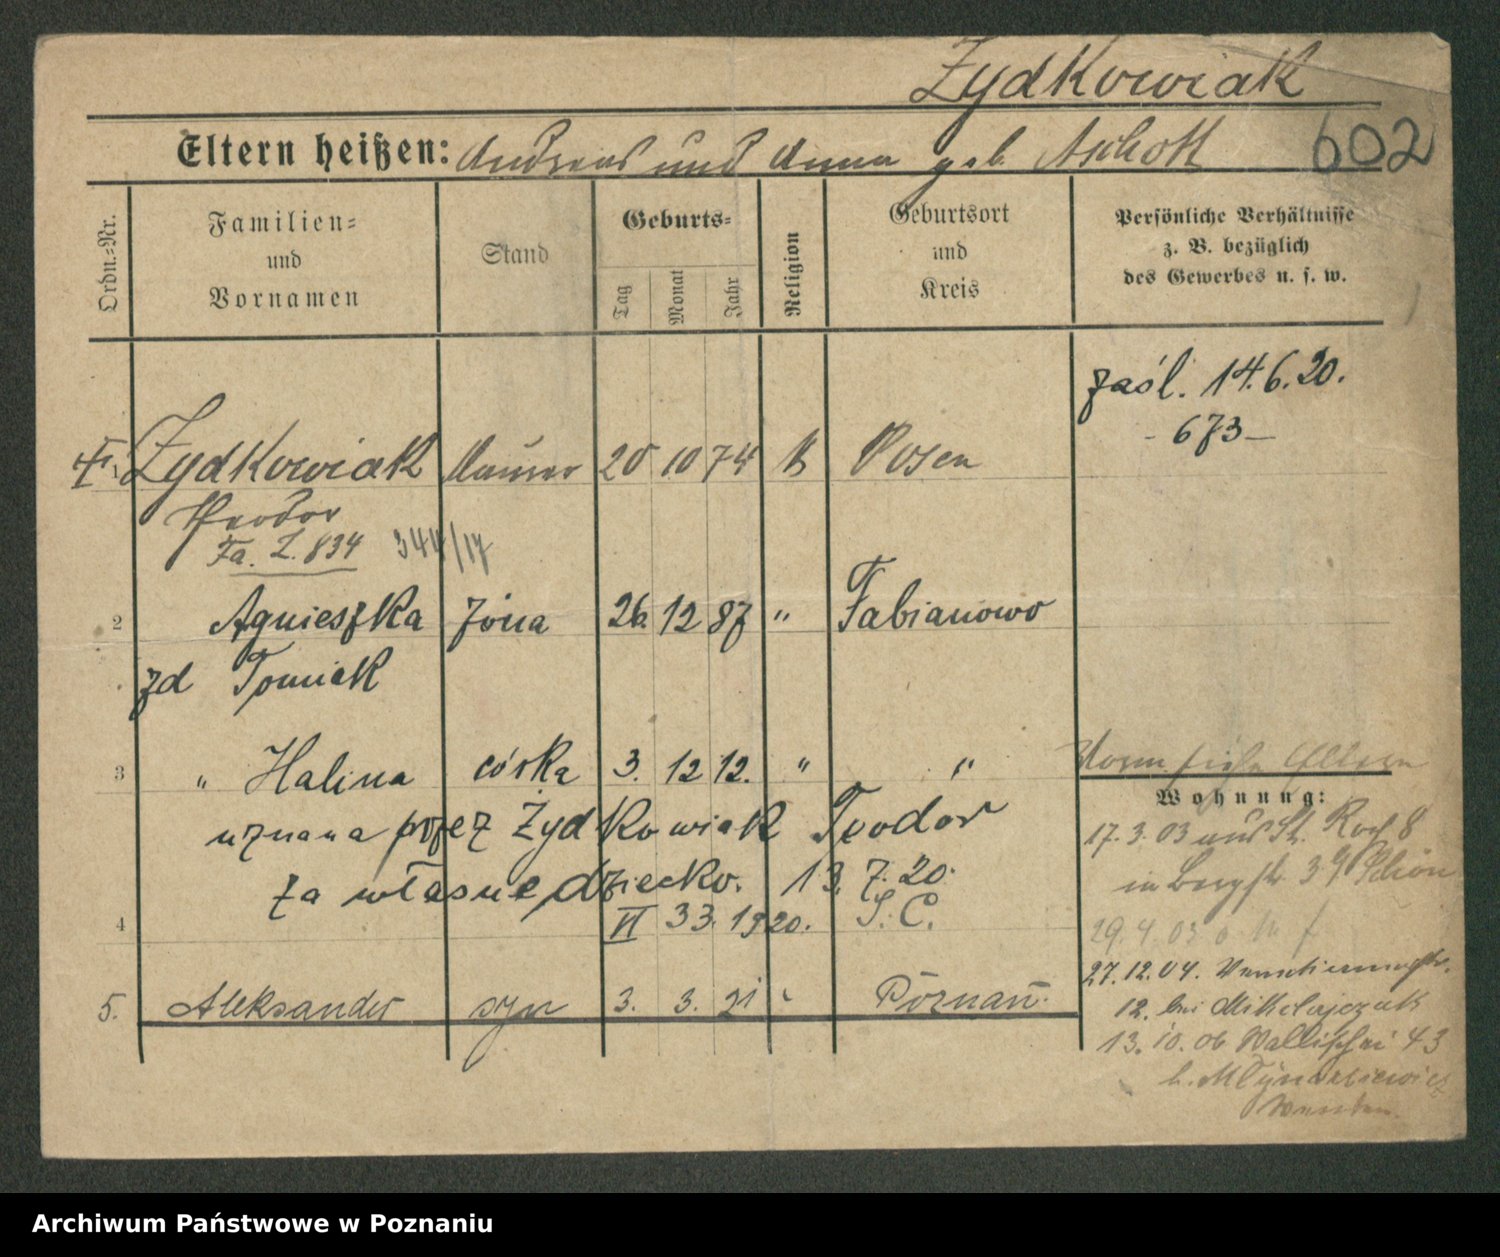 Zydkowiak
Eltern heißen: Andreas und Anna geb. Aschott
602
Ordn.-Nr.
Familien-
und
Vornamen
Stand
Geburts-
Tag
Monat
Jahr
Religion
Geburtsort
und
Kreis
Persönliche Verhältnisse
z. B. bezüglich
des Gewerbes u. s. w.
zaśl. 14.6.20.
- 673 -
Zydkowiak Maurer 20 10 74 K Posen
Theodor
Fa. Z. 834 344/17
2 Agnieszka żona 26. 12 87 " Fabianowo
zd Tomiak
3 " Halina córka 3. 12 12. " "
uznana przez Zydkowiak Teodor
za własne dziecko. 13. 7. 20.
4 VI 33. 1920. S. C.
5. Aleksander syn 3. 3. 21 " Poznań.
Eltern
Wohnung:
17.3.03 aus St. Roch 8
in Bergstr. 39 Schön
29. 4. 03
27.12.04.
12. bei Mikolajczak
13. 10. 06 Wallischei 43
b. Mlynarkiewicz